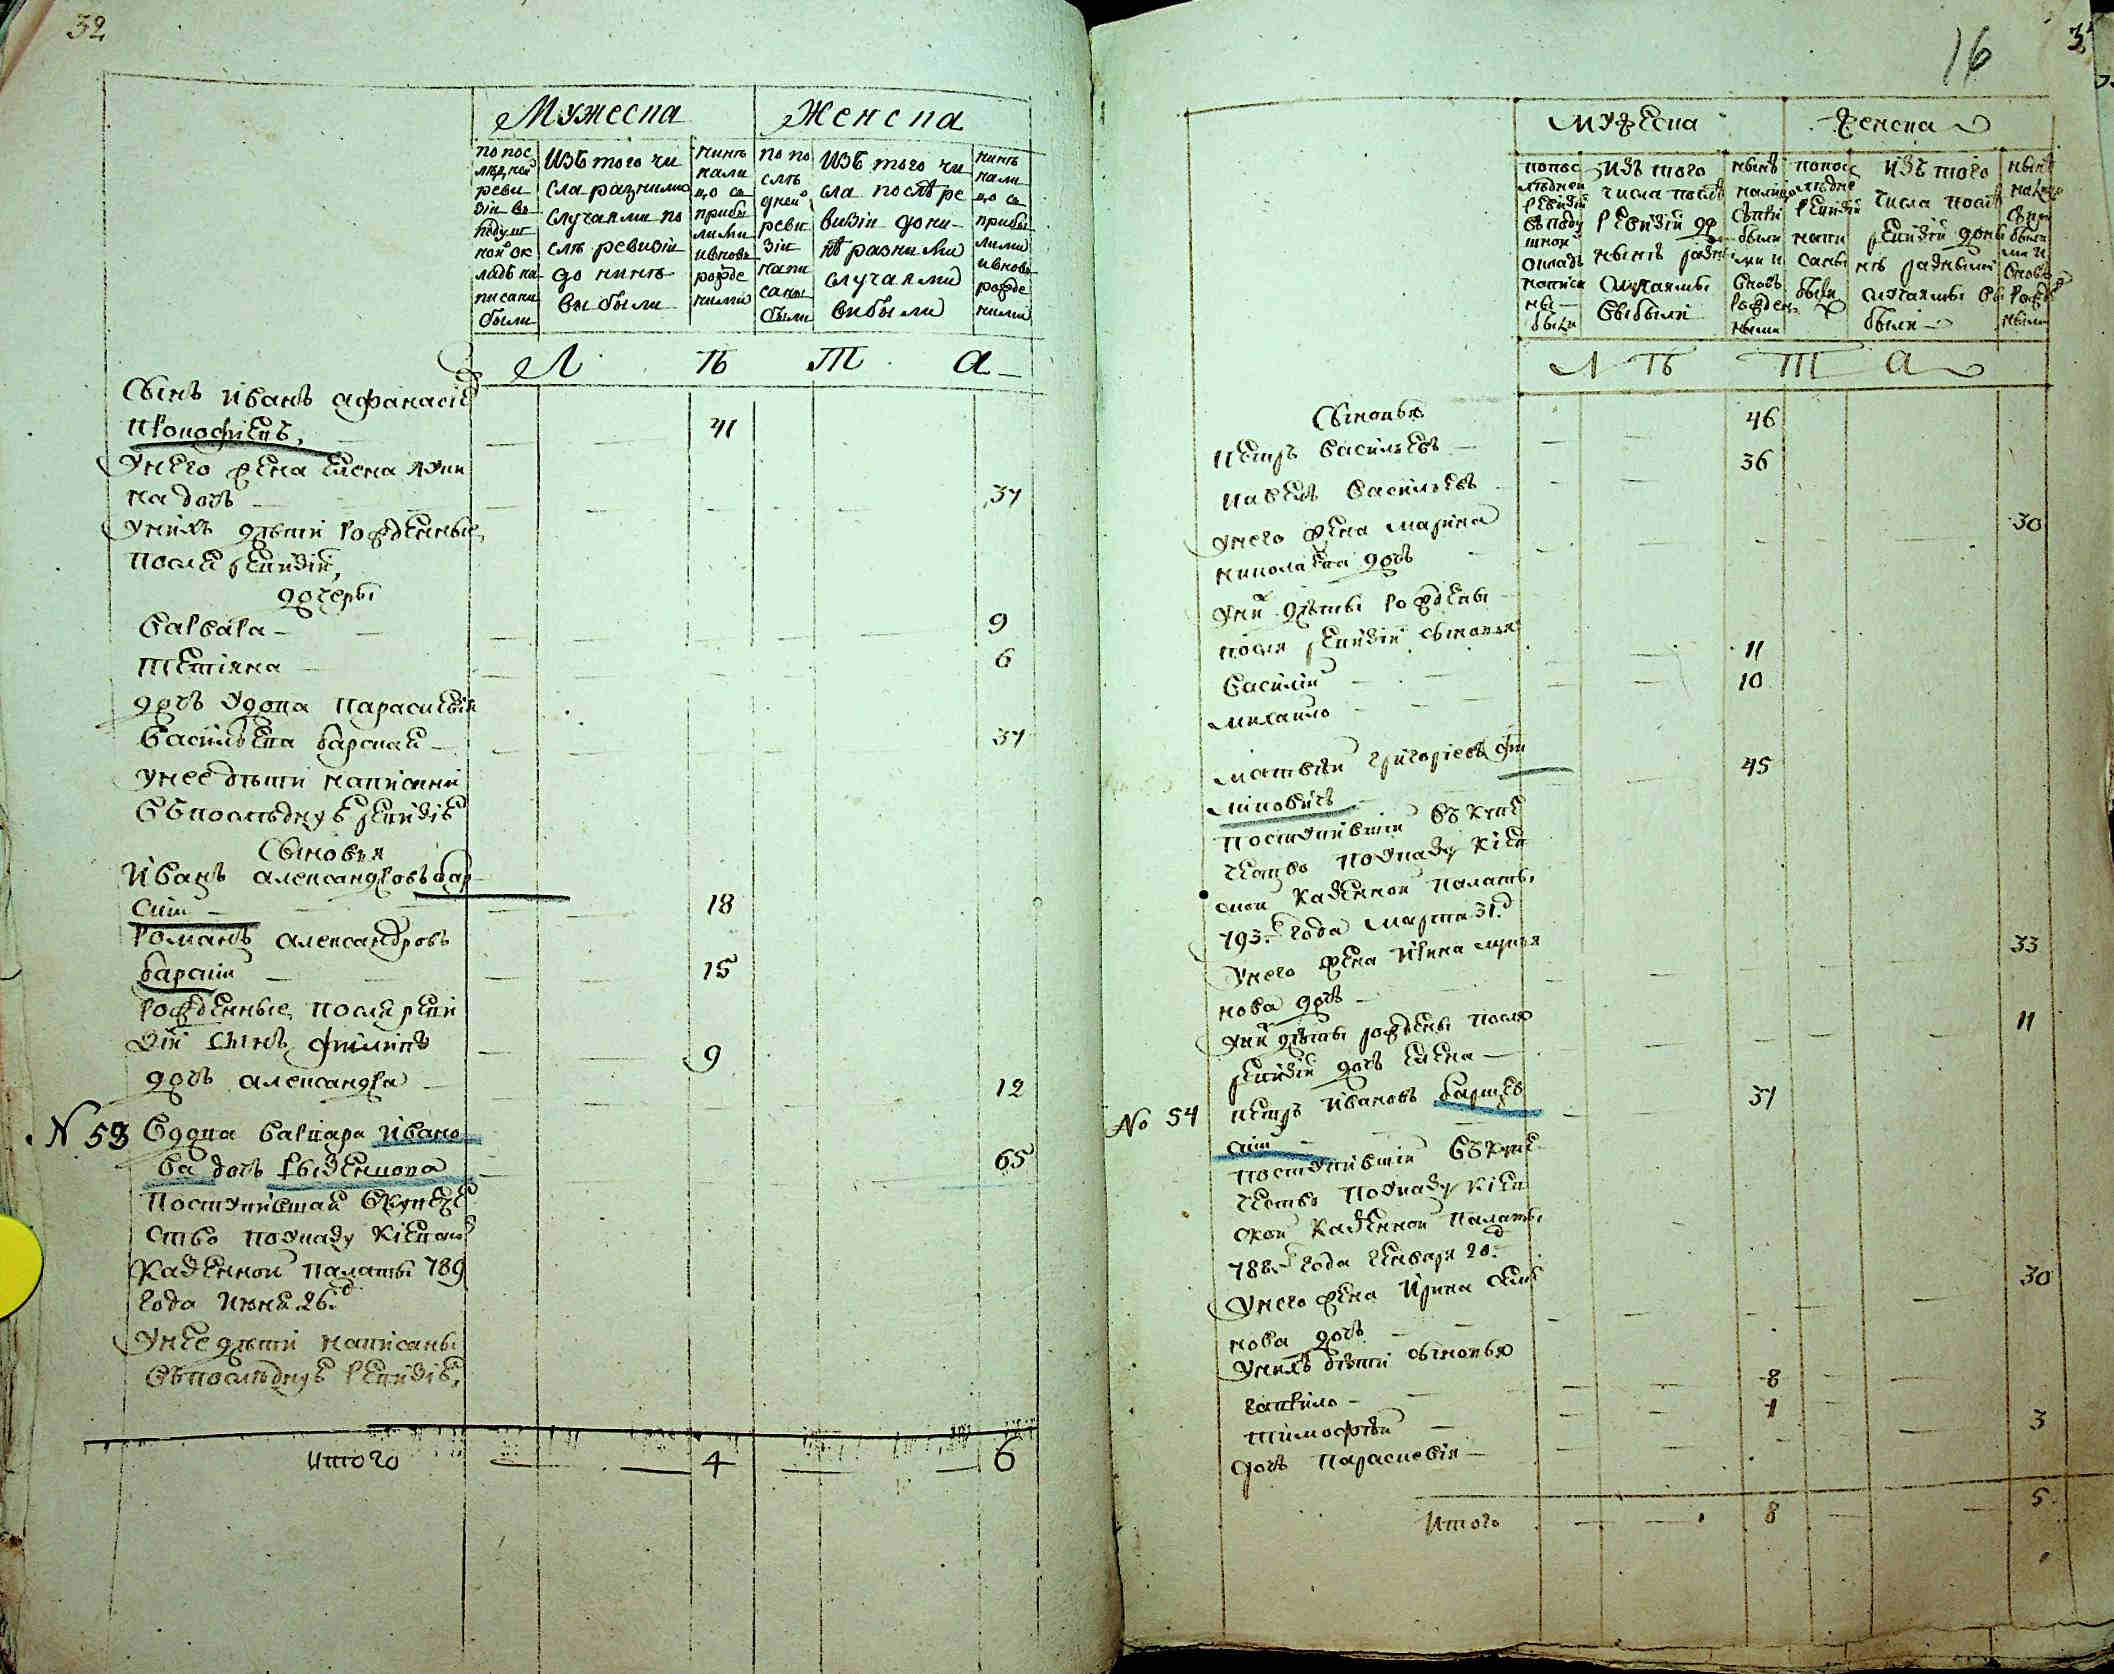 32
Мужеска
Женска
по пос
лѣдней
реви
зіи въ
подуш
ной ок
ладъ на
писани
были
Изъ того чи
сла разними
случаями по
слѣ ревизіи
до нинѣ
выбыли
нинѣ
нали
цо съ
прибы
лими
ивновь
рожде
ними
по по
слѣ
дней
реви
зіи
напи
саны
были
Изъ того чи
сла послѣ ре
визіи до ни
нѣ разними
случаями
вибыли
нинѣ
нали
цо съ
прибы
лими
ивновь
рожде
ними
Л Ѣ Т А
Сынъ Иванъ Афанасіе
Прокофиевъ, 41
Унего жена Елена Луки
на дочь 37
Унихъ дѣти рожденные
После ревизіи,
дочери
Варвара 9
Тетіяна 6
дочь удова Параскевія
Васильева Барская 37
Унее дѣти написани
Въпослѣднуѣ ревизіѣ
Сыновья
Иванъ Александровъ Бар
скій 18
Романъ Александровъ
Барскій 15
Рожденные после реви
зіи сынъ Филипъ 9
дочь Александра 12
N 53 Вдова Варвара Ивано
ва дочь 65
Поступившая Вкупече
ство Поуказу Кіевской
Казенной Палаты 789
года Июня 26.
Унее дѣти написаны
Въпослѣднуѣ Ревизіѣ,
Итого 4 6
16
Мужеска
Женска
попос
лѣдней
ревизіи
въподу
шной
окладъ
написа
ны
были
Изъ того
числа послѣ
ревизіи до
нынѣ разны
случаями
выбыли
нынѣ
налицо
съпри
были
ми и
вновь
рожден
ными
попос
лѣдне
ревизіи
напи
саны
были
Изъ того
числа послѣ
ревизіи доны
нѣ разными
случаями вы
были
нынѣ
налицо
съпри
были
ми и
вновь
рожде
ными
Л Ѣ Т А
Сыновья
Петръ Васильевъ 46
Павелъ Васильевъ 36
Унего жена Марина
Николаева дочь 30
Уни дѣти рождены
после ревизіи сыновья
Василій 11
Михайло 10
Матвѣй Григоріевъ 45
Поступившій Въкупе
чество Поуказу Кіев
ской Казенной Палаты
793. года Марта 31.
Унего жена Ирина
нова дочь 33
Уних дѣти рождены после
ревизіи дочь Елена 11
No 54 Петръ Ивановъ 37
скій
Поступившій Въкупе
чество Поуказу Кіев
ской Казенной Палаты
788. года Генваря 20.
Унего жена Ирина
нова дочь 30
Унихъ дѣти сыновья
Гаврило 8
Тимофѣй 1
дочь Параскевія 3
Итого 8 5